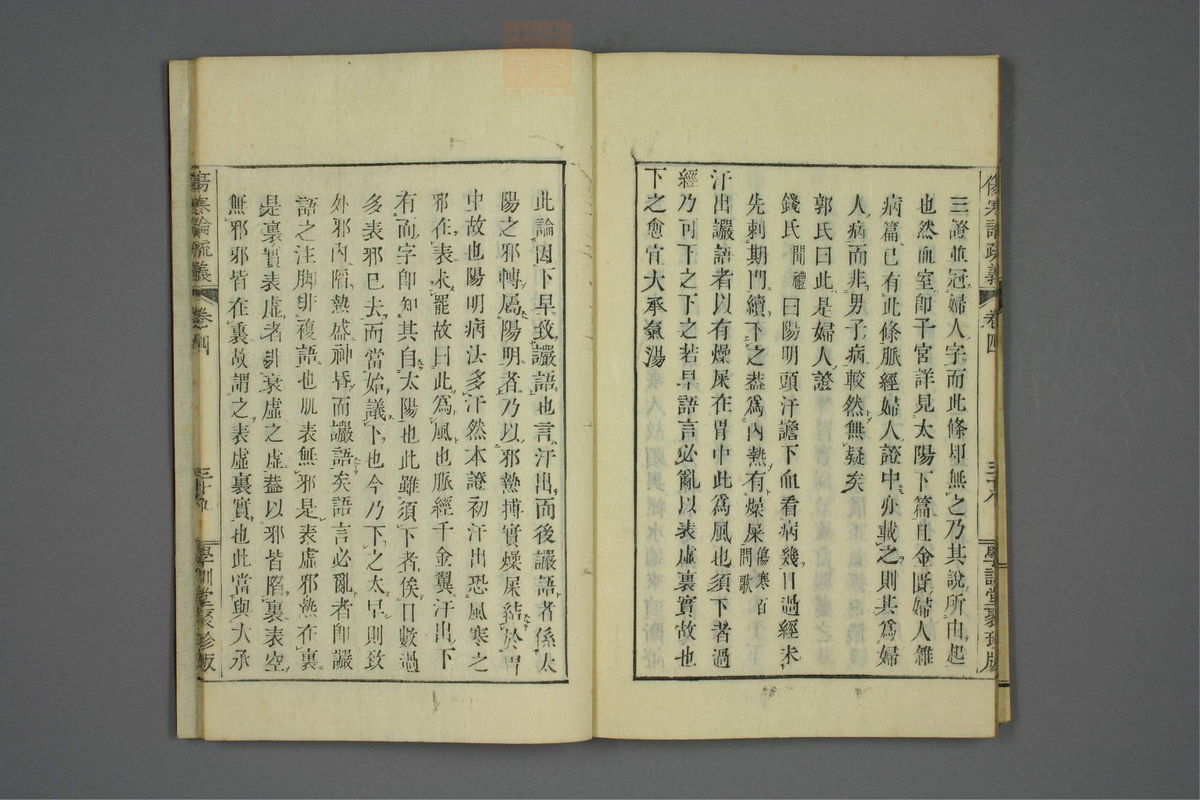 三證並冠婦人字而此條却無之乃其說所由起
也然血室卽子宮詳見太陽下篇且金匱婦人雜
病篇已有此條脈經婦人證中亦載之則其爲婦
人病而非男子病較然無疑矣
郭氏曰此是婦人證
錢氏聞禮曰陽明頭汗譫下血看病幾日過經未
先刺期門續下之蓋爲內熱有燥屎傷寒百問歌
汗出讝語者以有燥屎在胃中此爲風也須下者過
經乃可下之下之若早語言必亂以表虛裏實故也
下之愈宜大承氣湯
傷寒論疏義
卷四
三十八
學訓堂聚珍版
此論因下早致讝語也言汗出而後讝語者係太
陽之邪轉屬陽明者乃以邪熱搏實燥屎結於胃
中故也陽明病法多汗然本證初汗出恐風寒之
邪在表未罷故曰此爲風也脈經千金翼汗出下
有而字卽知其自太陽也此雖須下者俟日數過
多表邪已去而當始議下也今乃下之太早則致
外邪內陷熱盛神昏而讝語矣語言必亂者卽讝
語之注脚非複語也肌表無邪是表虛邪熱在裏
是裏實表虛者非衰虛之虛蓋以邪皆陷裏表空
無邪邪皆在裏故謂之表虛裏實也此當與大承
傷寒論疏義
卷四
三十九
學訓堂聚珍版